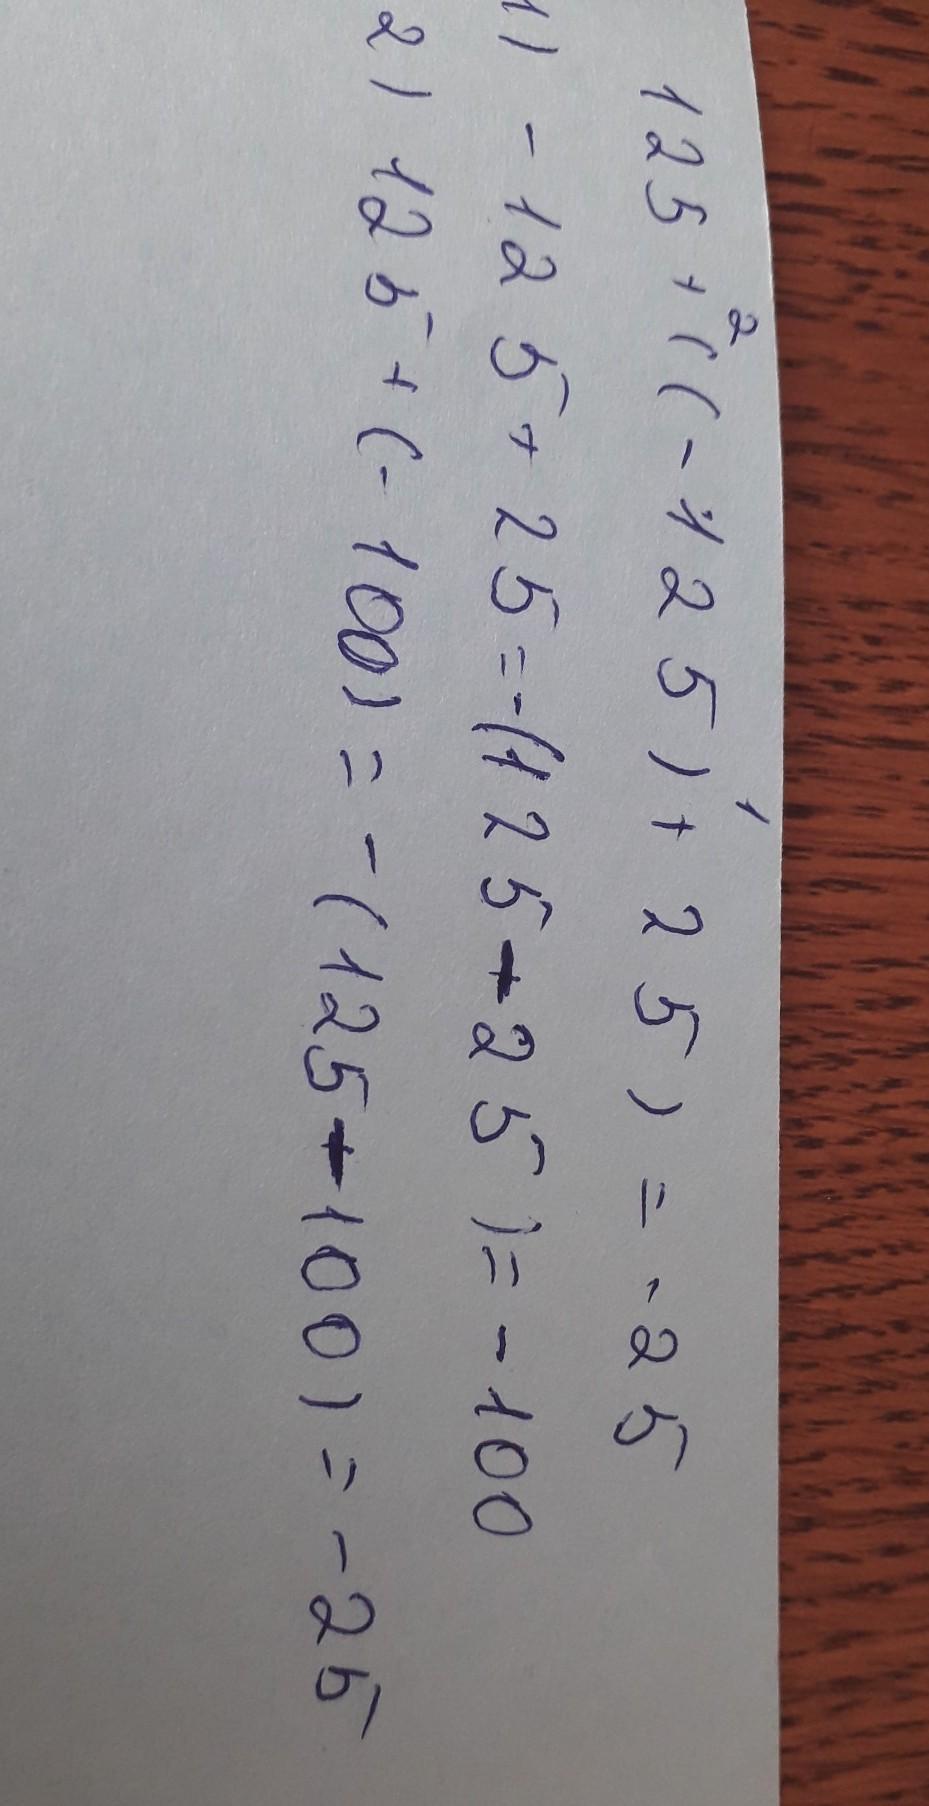 125 +² ((-125) +¹ 25) = -25
1) -125 + 25 = -(125 - 25) = -100
2) 125 + (-100) = -(125 - 100) = -25